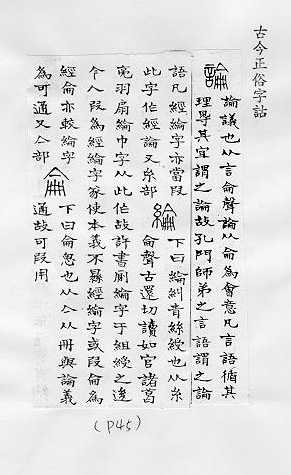 古今正俗字詁
論
論議也从言侖聲論从侖為會意凡言語循其
理得其宜謂之論故孔門師弟之言語謂之論
語凡經綸字亦當叚
此字作經論又糸部
綸
下曰綸糾青絲綬也从糸
侖聲古還切讀如官諸葛
亮羽扇綸巾字从此作故許書厠綸字于組綬之後
今人叚為經綸字篆使本義不㬎經綸字或叚侖為
經侖亦較綸字
為可通又亼部
侖
下曰侖思也从亼从冊與論義
通故可叚用
(P45)